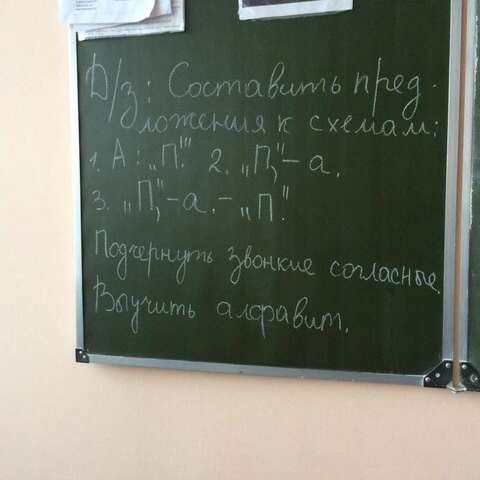 Д/з: Составить пред-
ложения к схемам:
1. А: „П." 2. „П,"– а.
3. „П,"– а. – „П."
Подчернуть звонкие согласные.
Выучить алфавит.